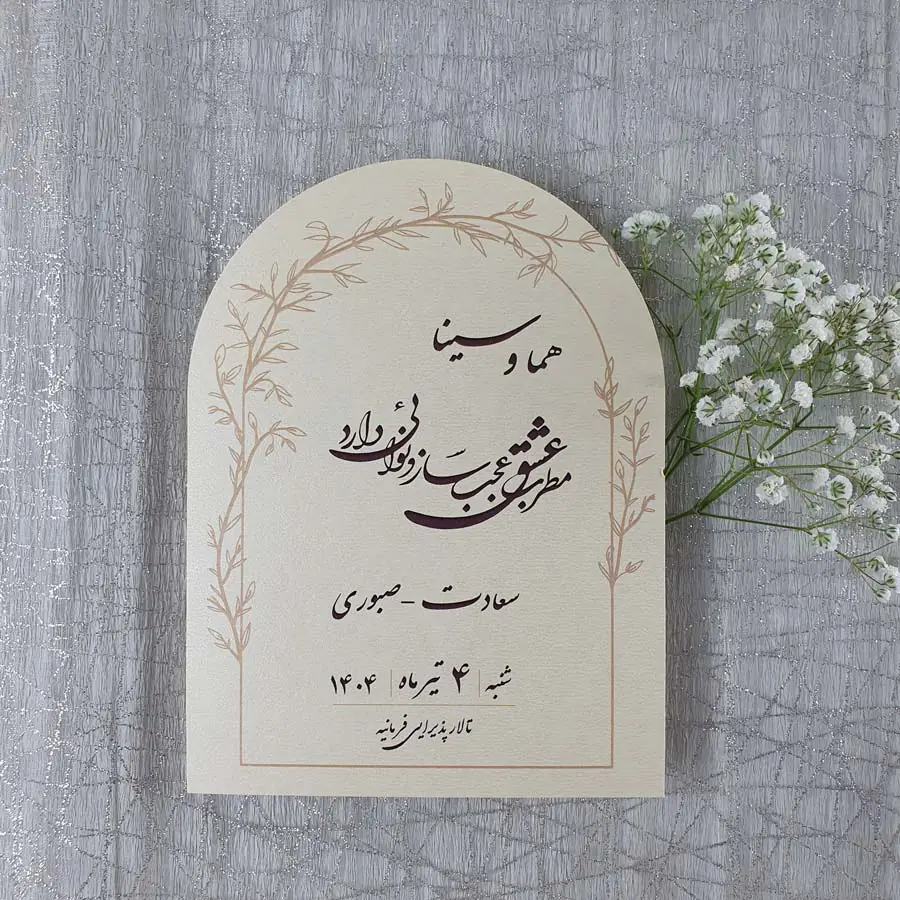 هما و سینا
مطرب عشق عجب ساز و نوائی دارد
سعادت - صبوری
شنبه | ۴ تیر ماه | ۱۴۰۴
تالار پذیرایی فرمانیه